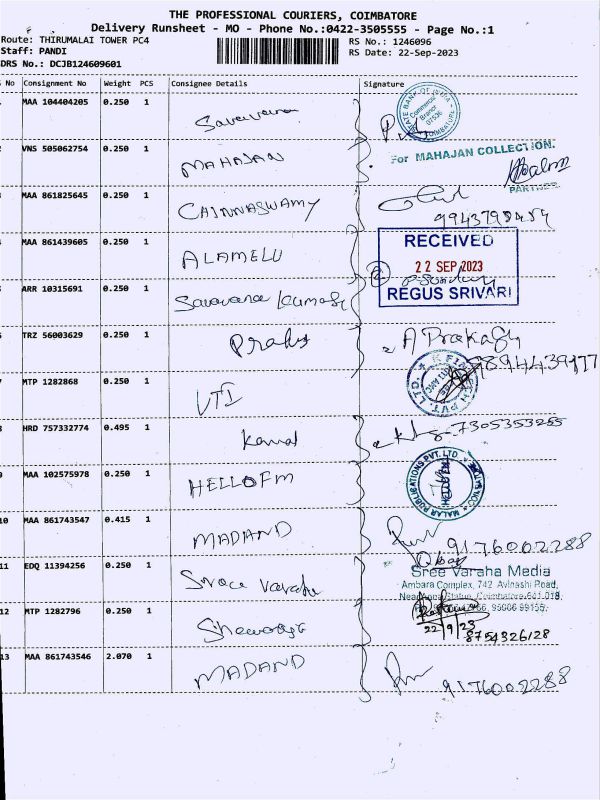 THE PROFESSIONAL COURIERS, COIMBATORE
Delivery Runsheet - MO - Phone No.:0422-3505555 - Page No.:1
Route: THIRUMALAI TOWER PC4
RS No.: 1246096
Staff: PANDI
RS Date: 22-Sep-2023
DRS No.: DCJB124609601
No Consignment No Weight PCS Consignee Details Signature
MAA 104404205 0.250 1 Saravana
STATE BANK OF INDIA
Commercial Branch
COIMBATORE
VNS 505062754 0.250 1 MAHAJAN
For MAHAJAN COLLECTION.
PARTNER
MAA 861825645 0.250 1 CHINNASWAMY
MAA 861439605 0.250 1 ALAMELU
RECEIVED
22 SEP 2023
REGUS SRIVARI
ARR 10315691 0.250 1 Saravana Kumar
TRZ 56003629 0.250 1
A Prakash
9894439177
MTP 1282868 0.250 1 UTI
PVT. LTD.
HRD 757332774 0.495 1 Kamal
7305353255
MAA 102575978 0.250 1 HELLO FM
MALAR PUBLICATIONS PVT. LTD
10 MAA 861743547 0.415 1 MADAND
9176002288
11 EDQ 11394256 0.250 1 Sree Varaha
Sree Varaha Media
Ambara Complex, 742 Avinashi Road,
Coimbatore-641 018.
12 MTP 1282796 0.250 1
22/9/23
8754326128
13 MAA 861743546 2.070 1 MADAND
9176002288